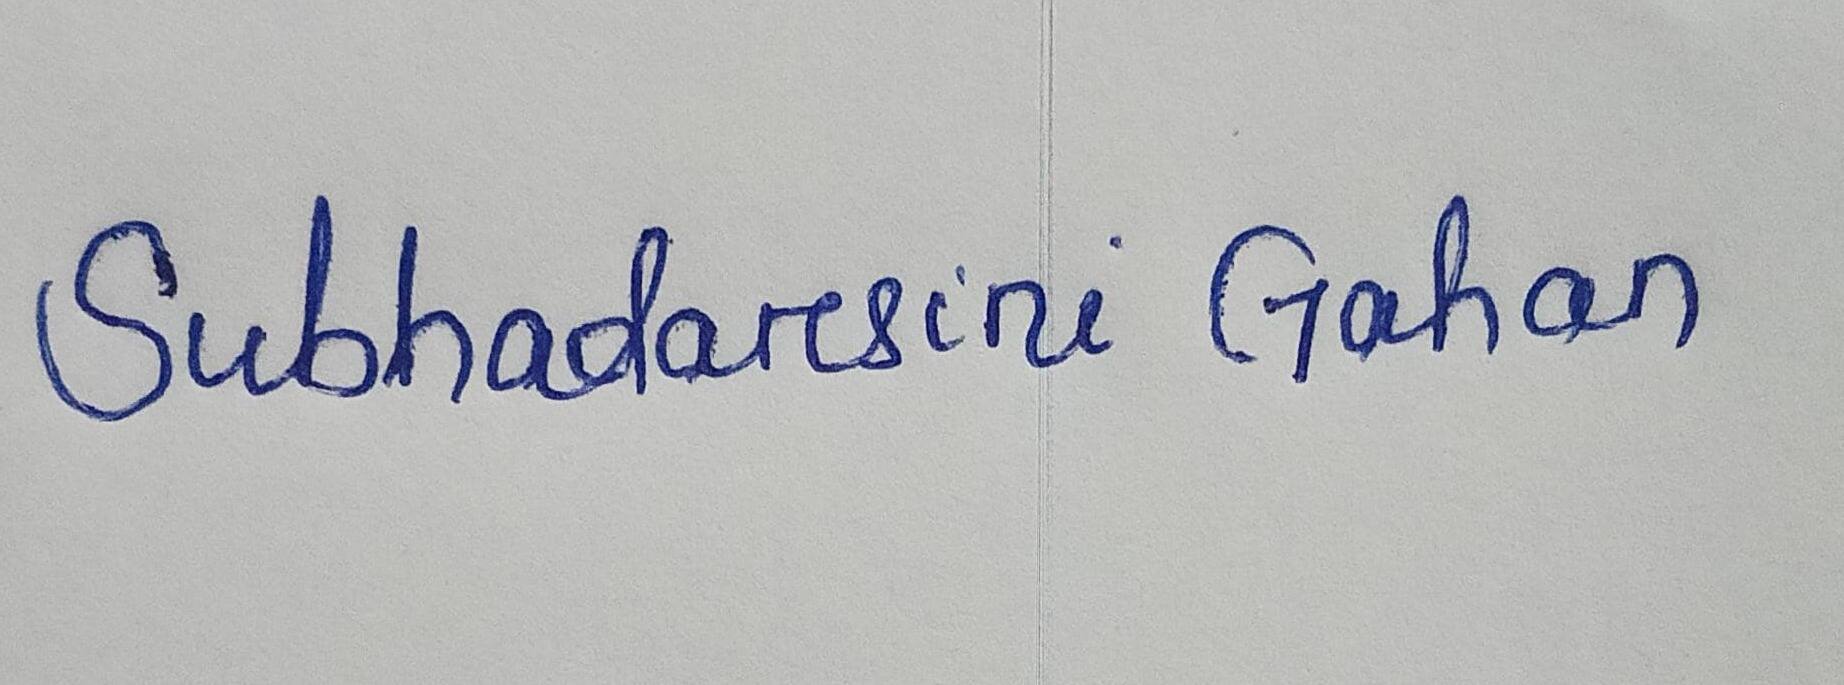 Subhadaresini Gahan